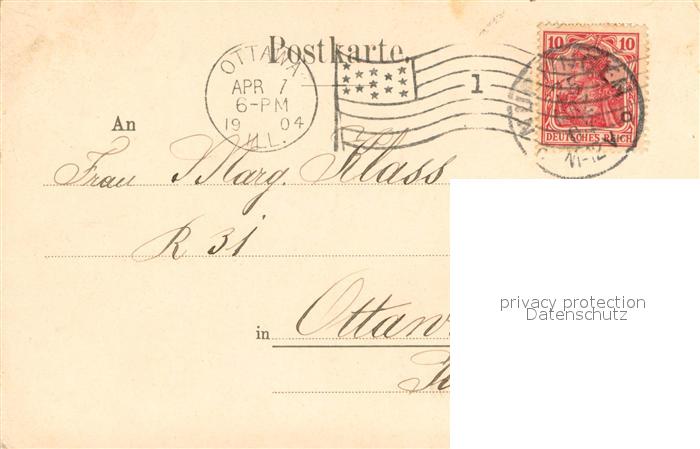 Postkarte.
OTTAWA
APR 7
6-PM
1904
ILL.
1
10 10
DEUTSCHES REICH
An
Frau Marg. Klass
R 31
in Ottaw
privacy protection
Datenschutz